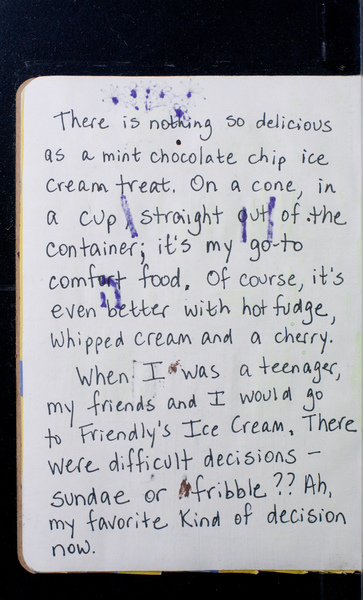 There is nothing so delicious
as a mint chocolate chip ice
cream treat. On a cone, in
a cup, straight out of the
container; it's my go-to
comfort food. Of course, it's
even better with hot fudge,
whipped cream and a cherry.
When I was a teenager,
my friends and I would go
to Friendly's Ice Cream. There
were difficult decisions –
sundae or fribble?? Ah,
my favorite kind of decision
now.